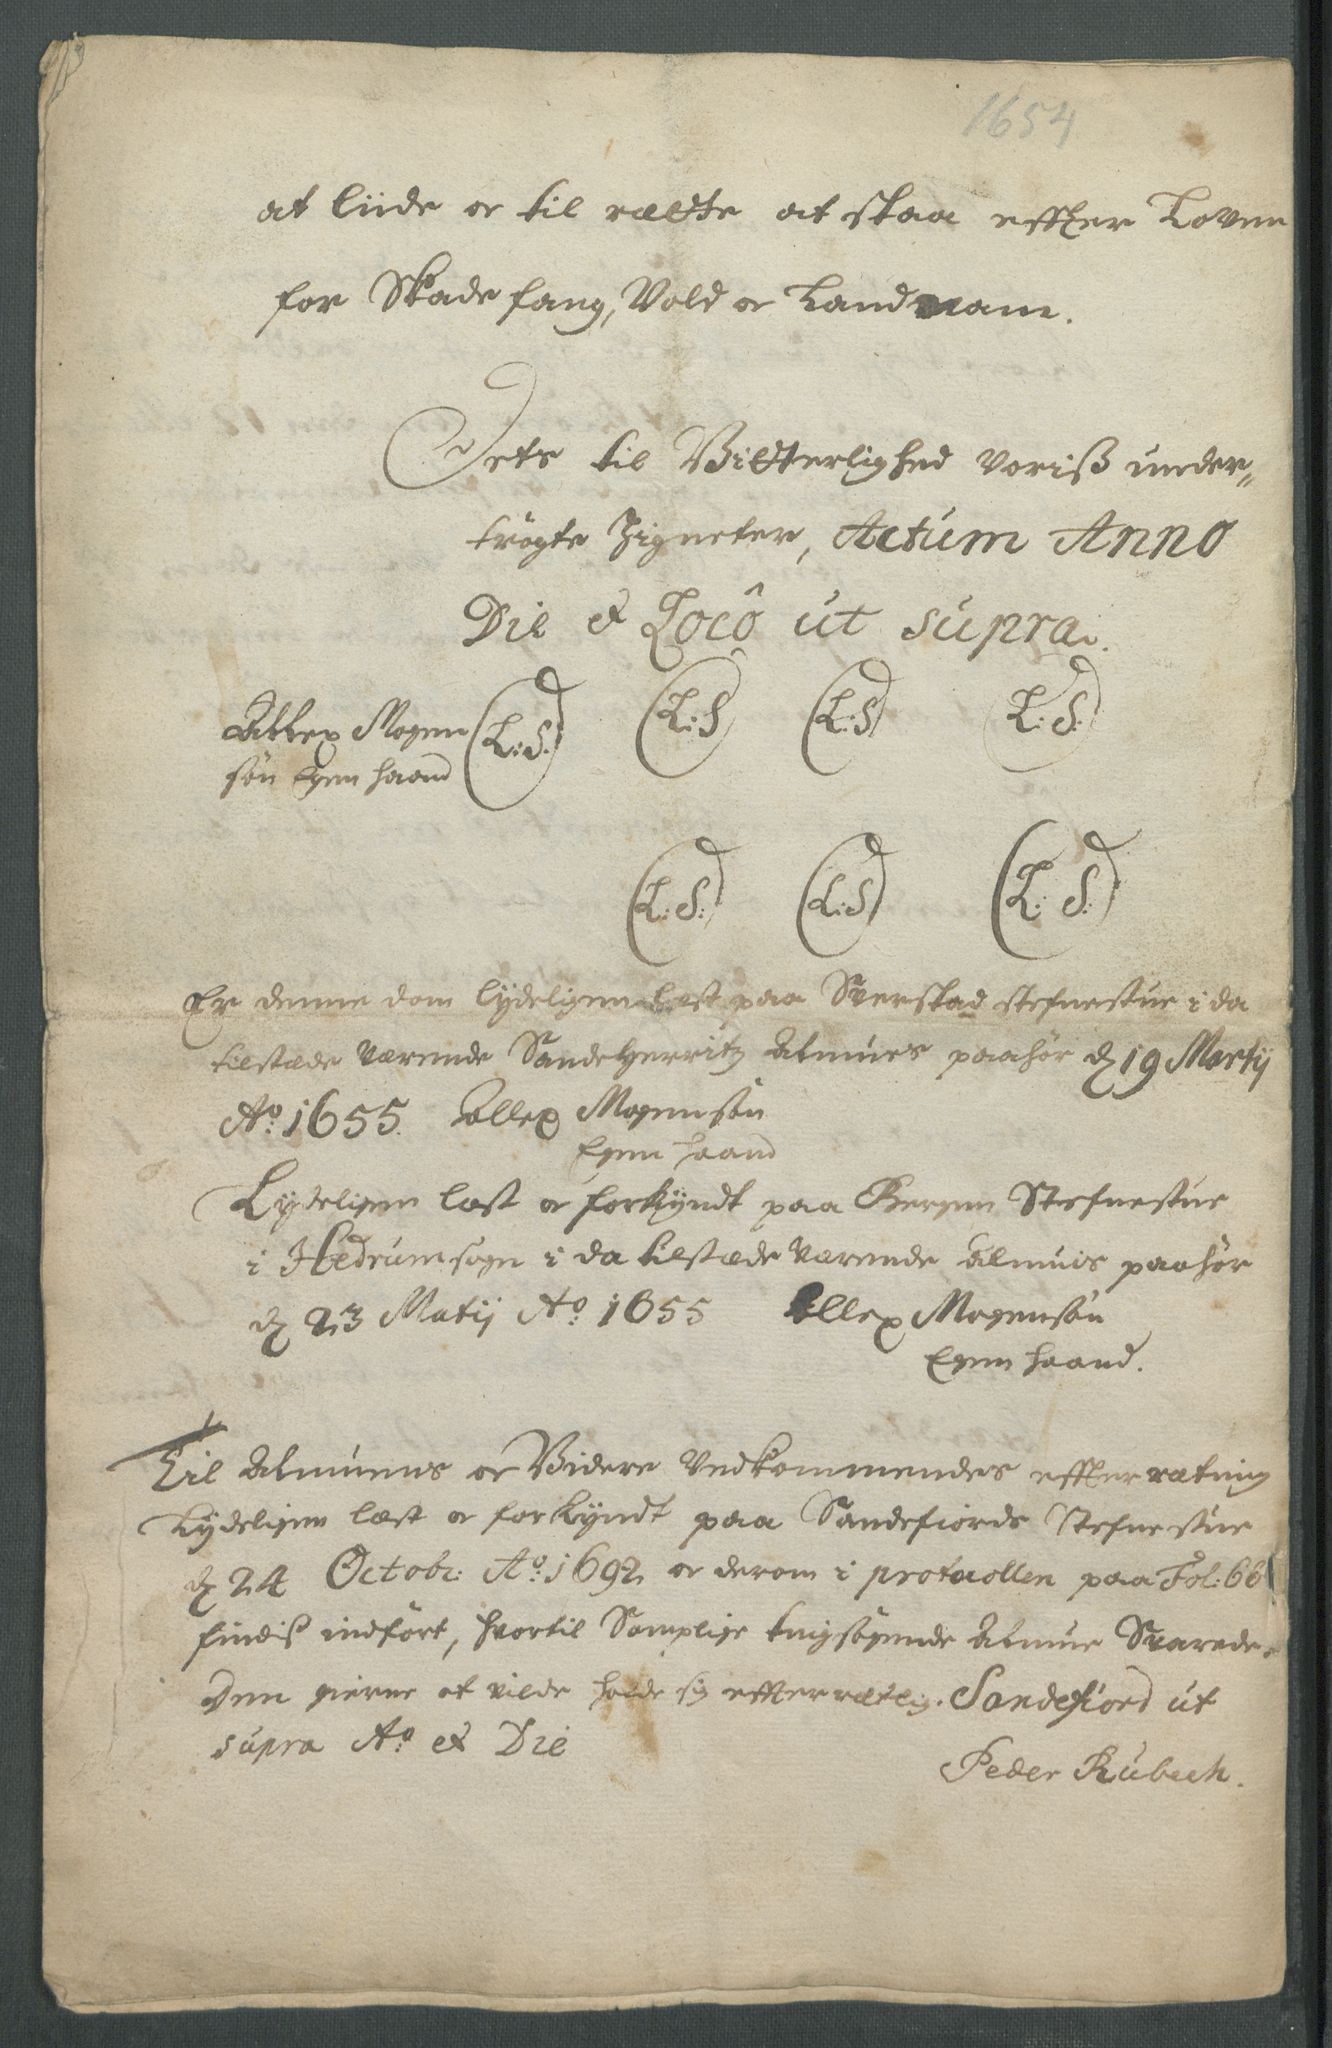 1654
at liide oc til rætte at staa effter Loven
for Skadefang, Vold oc Landnam.
Dets til Vitterlighed voriß under-
trögte Zigneter, Actum Anno
Die & Locô ut supra.
Allex Mogen (L:S.) (L:S) (L:S) (L:S.)
sön Egen haand
(L:S:) (L:S) (L:S:)
Er denne dom lydeligen læst paa Sverstad stefnestue i da
tilstæde værende Sandeherritz Almues paahör d 19 Martij
Ao: 1655. Allex Mogensön
Egen haand
Lydeligen læst oc forkyndt paa Bergen Stefnestue
i Hedrumsogn i da tilstæde værende Almuis paahör
d 23 Matij Ao: 1655 Allex Mogensön
Egen haand.
Til Almuens oc Videre Vedkommendes effterrætning
Lydeligen læst oc forkyndt paa Sandefiords Stefnestue
d 24 Octobr: Ao: 1692 oc derom i protocollen paa Fol: 66
findiß indfört, hvortil Samplige tingsögende Almue Svarede
Den gierne at vilde holde sig effterrætlig. Sandefiord ut
supra Ao: et Die
Peder Rubech.